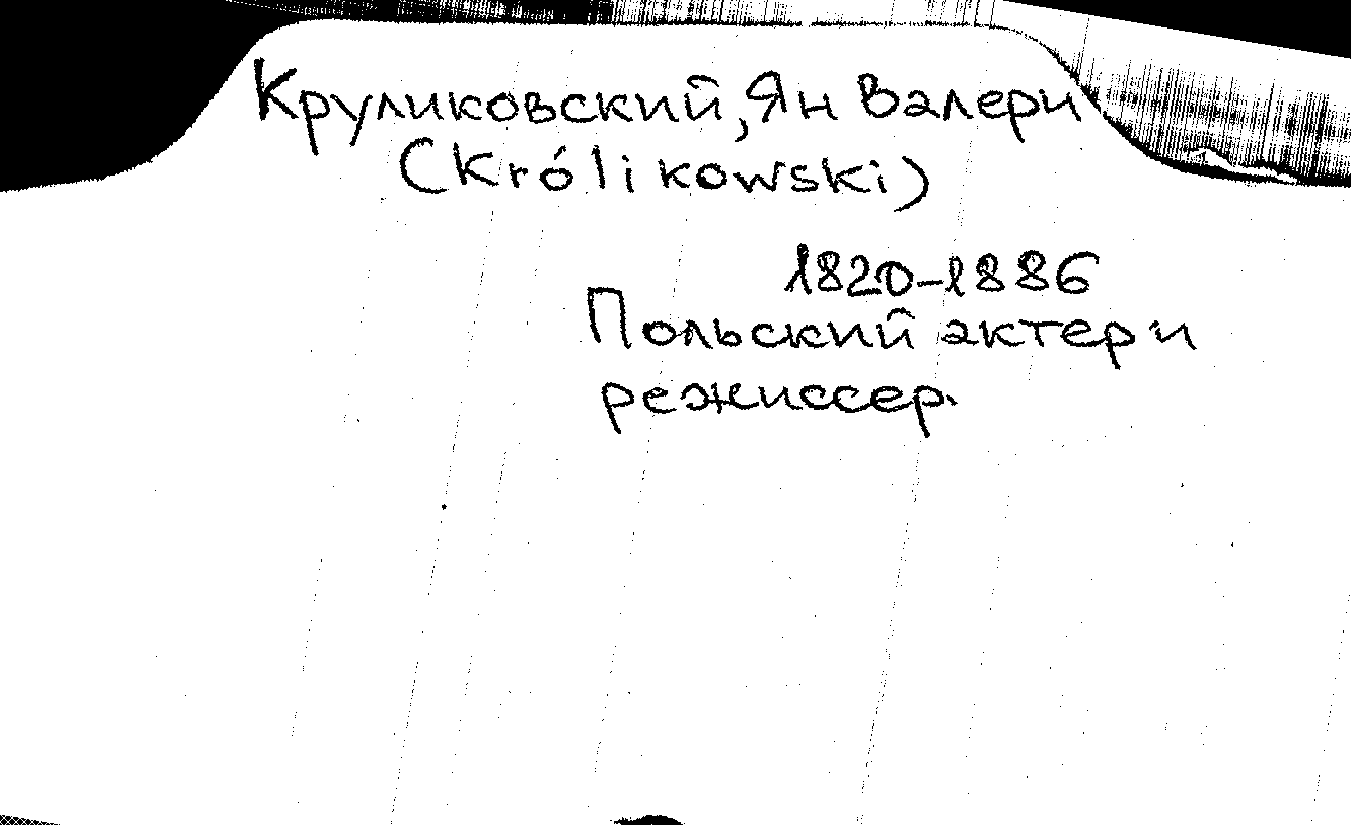 Круликовский, Ян Валери
(Królikowski)
1820-1886
Польский актер и
режиссер.